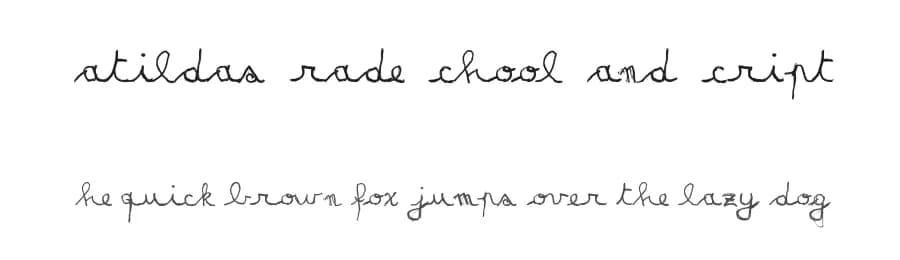 atildas rade chool and cript
he quick brown fox jumps over the lazy dog